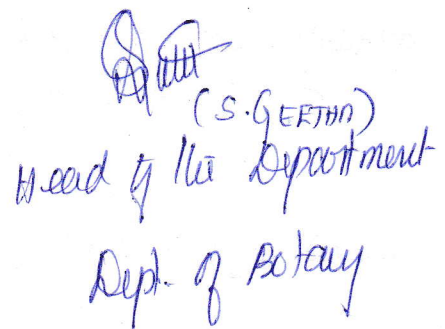 (S. GEETHA)
Head of the Department
Dept. of Botany